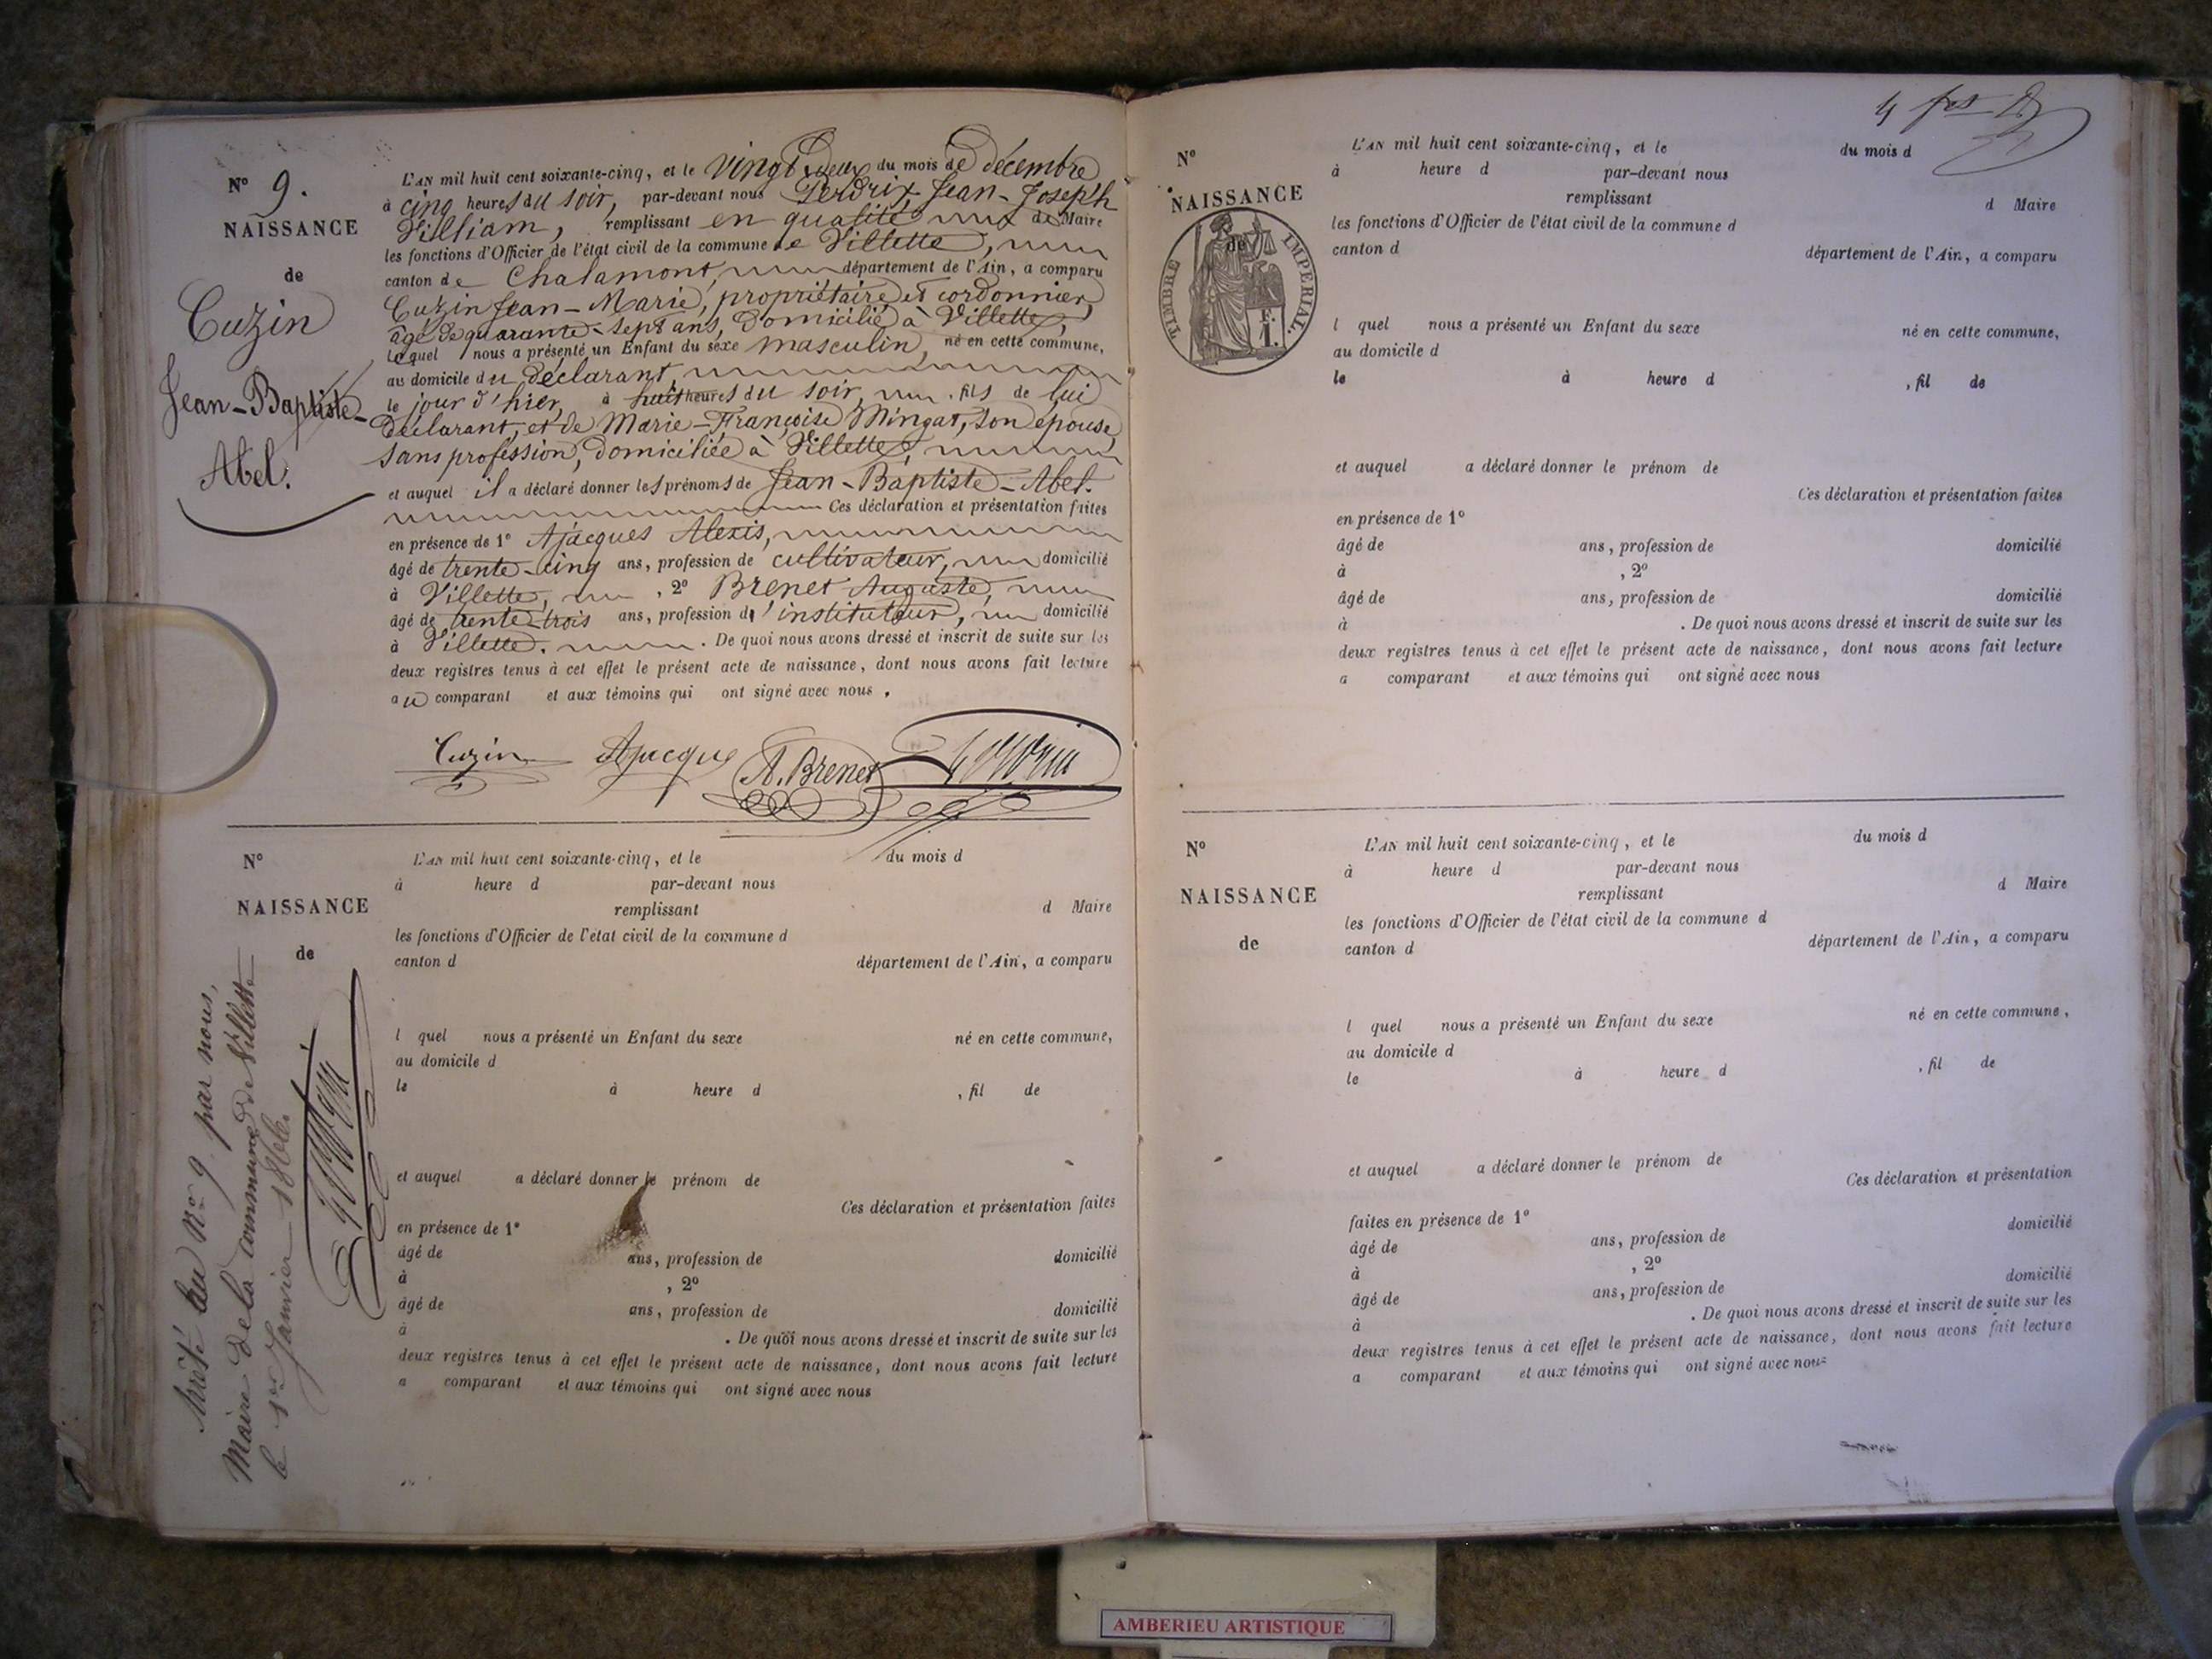 N° 9.
NAISSANCE
de
Cuzin
Jean-Baptiste-
Abel.
L'AN mil huit cent soixante-cinq, et le vingt-deux du mois de décembre
à cinq heures du soir, par-devant nous Perdrix Jean-Joseph
William, remplissant en qualité de Maire
les fonctions d'Officier de l'état civil de la commune de Villette,
canton de Chalamont, département de l'Ain, a comparu
Cuzin Jean-Marie, propriétaire et cordonnier,
âgé de quarante-sept ans, domicilié à Villette,
lequel nous a présenté un Enfant du sexe masculin, né en cette commune,
au domicile du déclarant,
le jour d'hier, à huit heures du soir, fils de lui
déclarant, et de Marie-Françoise Mingat, son épouse,
sans profession, domiciliée à Villette,
et auquel il a déclaré donner les prénoms de Jean-Baptiste-Abel.
Ces déclaration et présentation faites
en présence de 1° Ajacques Alexis,
âgé de trente-cinq ans, profession de cultivateur, domicilié
à Villette, , 2° Brenet Auguste,
âgé de trente-trois ans, profession d'instituteur, domicilié
à Villette. . De quoi nous avons dressé et inscrit de suite sur les
deux registres tenus à cet effet le présent acte de naissance, dont nous avons fait lecture
au comparant et aux témoins qui ont signé avec nous.
Cuzin Ajacque A. Brenet
N°
NAISSANCE
de
L'AN mil huit cent soixante-cinq, et le du mois d
à heure d par-devant nous
remplissant d Maire
les fonctions d'Officier de l'état civil de la commune d
canton d département de l'Ain, a comparu
l quel nous a présenté un Enfant du sexe né en cette commune,
au domicile d
le à heure d , fil de
et auquel a déclaré donner le prénom de
Ces déclaration et présentation faites
en présence de 1°
âgé de ans, profession de domicilié
à , 2°
âgé de ans, profession de domicilié
à . De quoi nous avons dressé et inscrit de suite sur les
deux registres tenus à cet effet le présent acte de naissance, dont nous avons fait lecture
a comparant et aux témoins qui ont signé avec nous
Arrêté au N° 9 par nous,
Maire de la commune de Villette
le 1er Janvier 1866.
4
N°
NAISSANCE
de
TIMBRE IMPERIAL.
L'AN mil huit cent soixante-cinq, et le du mois d
à heure d par-devant nous
remplissant d Maire
les fonctions d'Officier de l'état civil de la commune d
canton d département de l'Ain, a comparu
l quel nous a présenté un Enfant du sexe né en cette commune,
au domicile d
le à heure d , fil de
et auquel a déclaré donner le prénom de
Ces déclaration et présentation faites
en présence de 1°
âgé de ans, profession de domicilié
à , 2°
âgé de ans, profession de domicilié
à . De quoi nous avons dressé et inscrit de suite sur les
deux registres tenus à cet effet le présent acte de naissance, dont nous avons fait lecture
a comparant et aux témoins qui ont signé avec nous
N°
NAISSANCE
de
L'AN mil huit cent soixante-cinq, et le du mois d
à heure d par-devant nous
remplissant d Maire
les fonctions d'Officier de l'état civil de la commune d
canton d département de l'Ain, a comparu
l quel nous a présenté un Enfant du sexe né en cette commune,
au domicile d
le à heure d , fil de
et auquel a déclaré donner le prénom de
Ces déclaration et présentation
faites en présence de 1° domicilié
âgé de ans, profession de
à , 2°
âgé de ans, profession de domicilié
à . De quoi nous avons dressé et inscrit de suite sur les
deux registres tenus à cet effet le présent acte de naissance, dont nous avons fait lecture
a comparant et aux témoins qui ont signé avec nous
AMBERIEU ARTISTIQUE